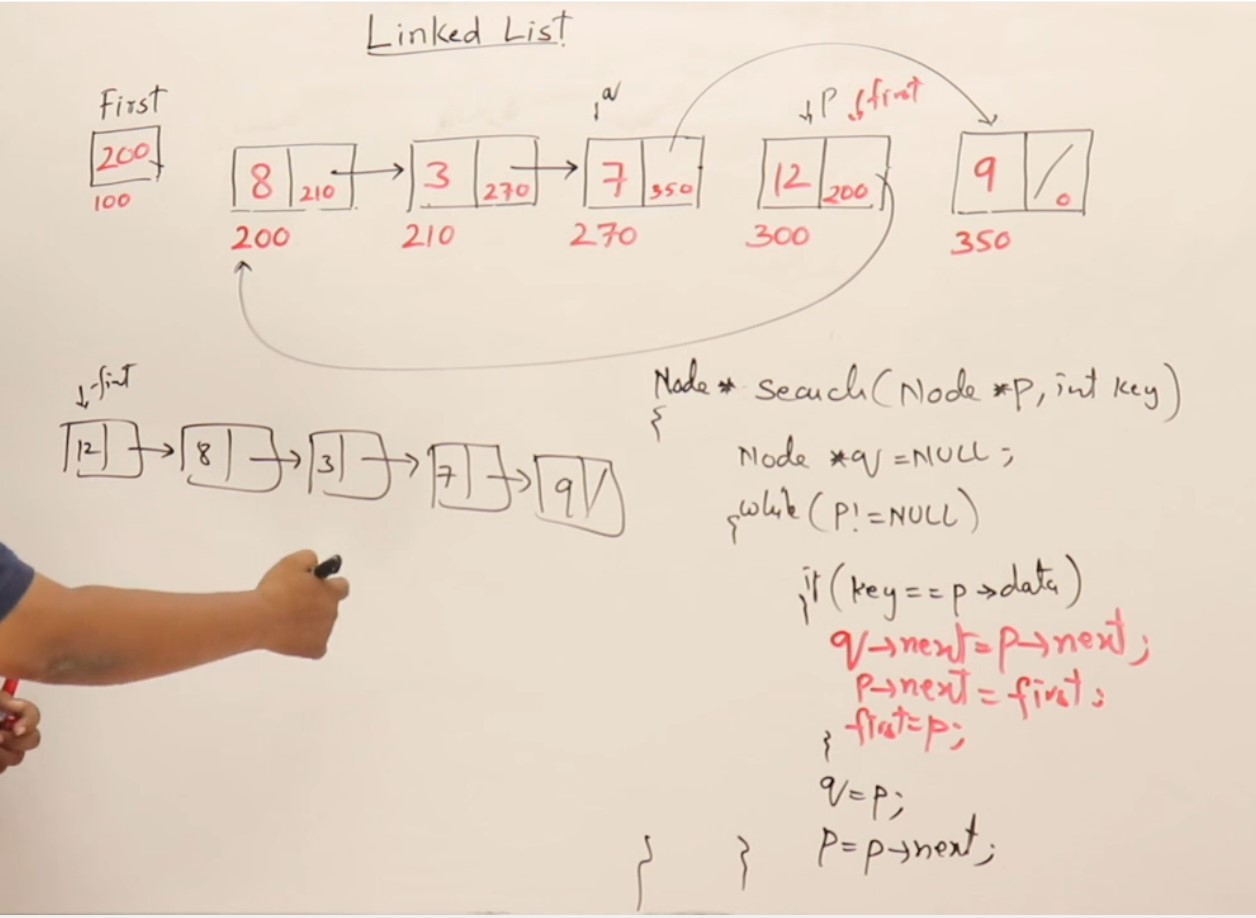 Linked List
First
200
100
q
P first
8 210
3 270
7 350
12 200
9 0
200
210
270
300
350
first
12
8
3
7
9
Node * Search(Node *P, int key)
{
Node *q = NULL;
{while (P!=NULL)
{if (key == p→data)
q→next = p→next;
p→next = first;
first=p;
}
q=p;
P=p→next;
} }